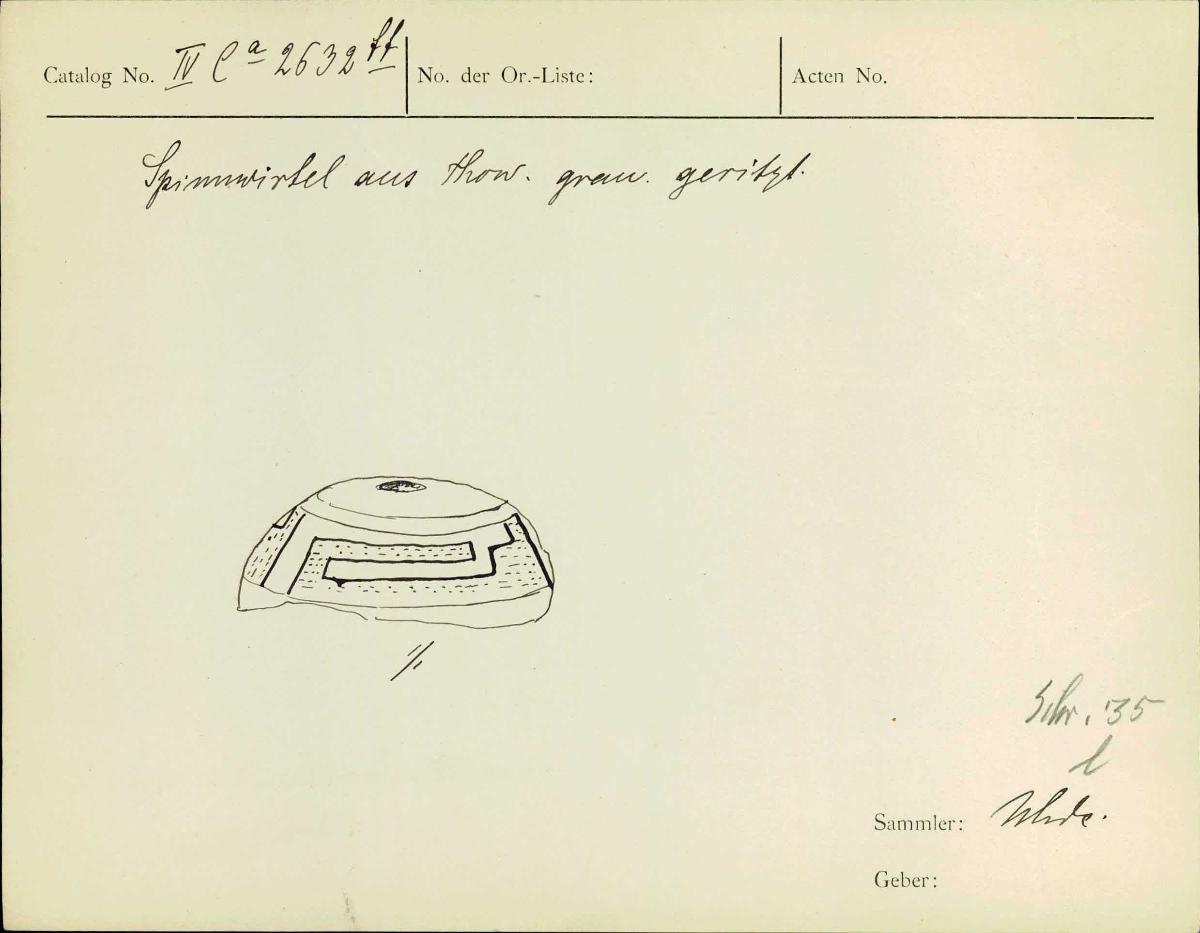 Catalog No. IV Ca 2632 ff
No. der Or.-Liste:
Acten No.
Spinnwirtel aus Thon. grau. geritzt.
1/1
Schr. 35
l
Sammler: Uhde.
Geber: